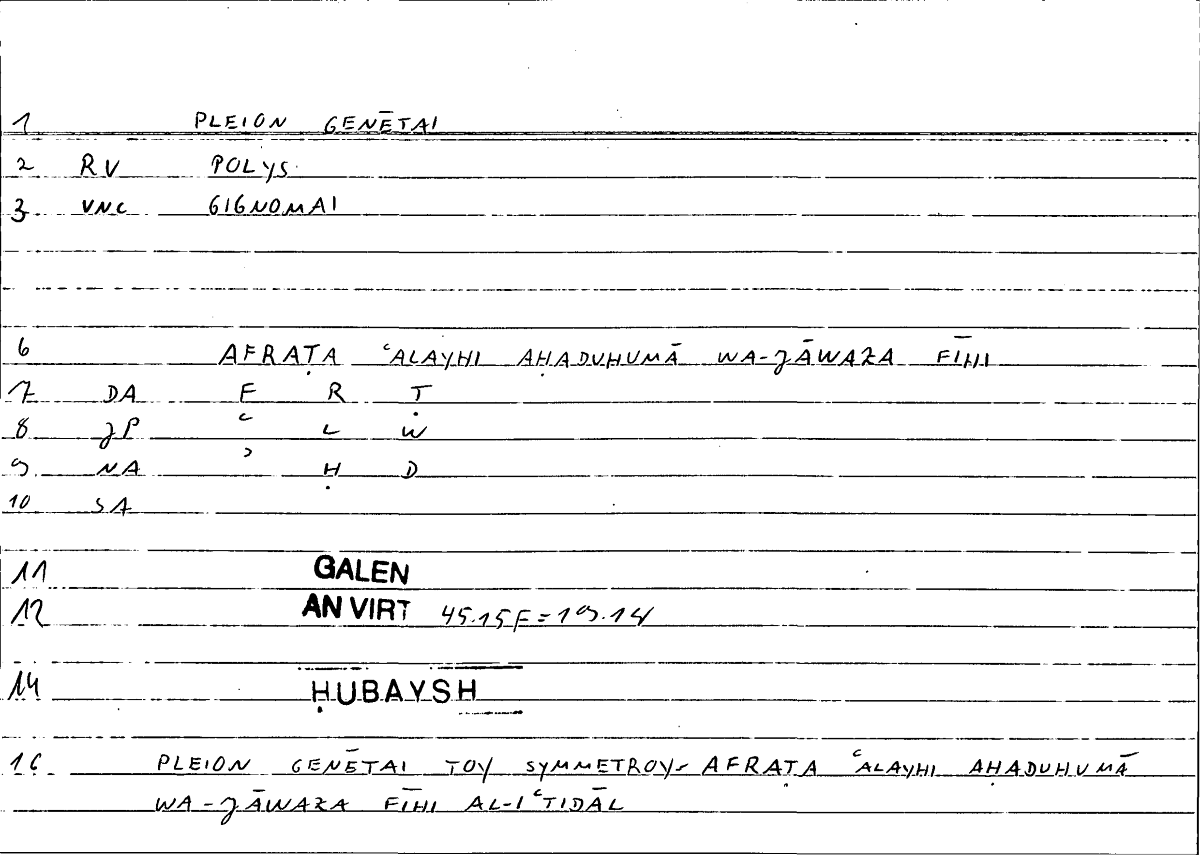 1 PLEION GENĒTAI
2 RV POLYS
3 VNC GIGNOMAI
6 AFRAṬA ʿALAYHI AḤADUHUMĀ WA-JĀWAZA FĪHI
7 DA F R Ṭ
8 JP ʿ L W
9 NA ʾ Ḥ D
10 SA
11 GALEN
12 AN VIRT 45.15F=19.14
14 ḤUBAYSH
16 PLEION GENĒTAI TOY SYMMETROY- AFRAṬA ʿALAYHI AḤADUHUMĀ
WA-JĀWAZA FĪHI AL-IʿTIDĀL